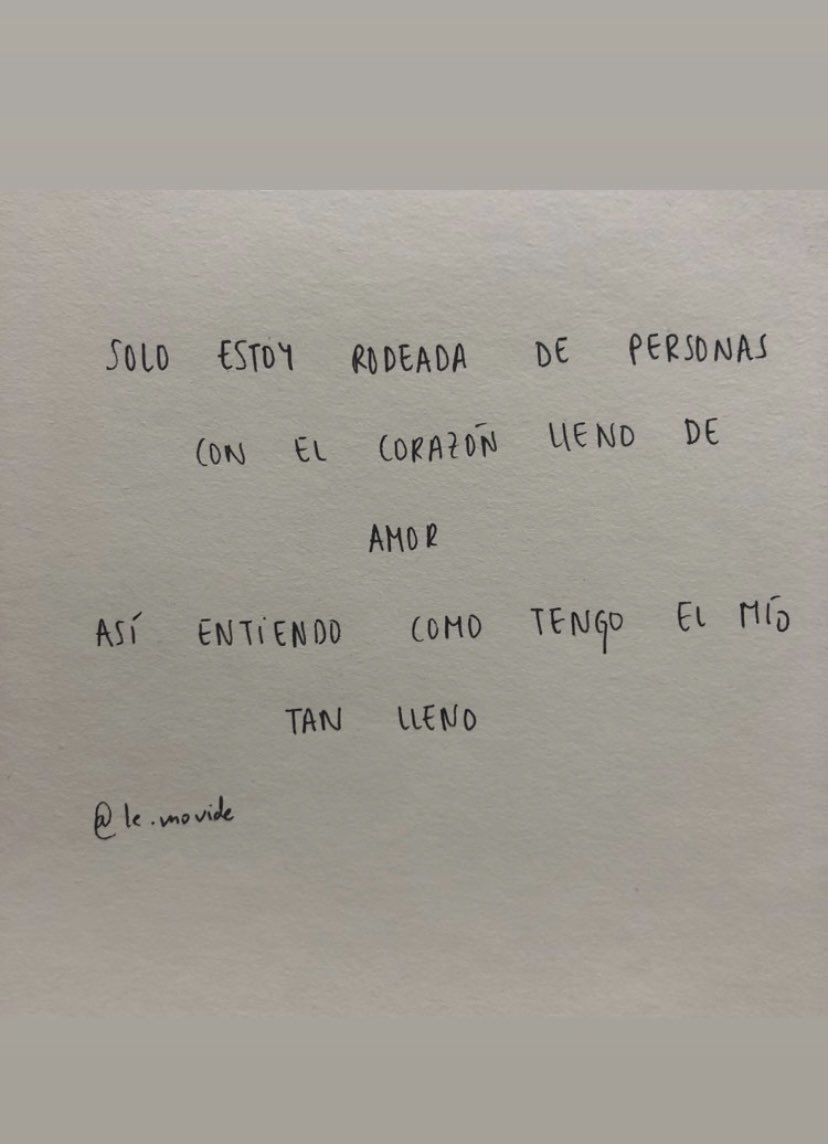 SOLO ESTOY RODEADA DE PERSONAS
CON EL CORAZÓN LLENO DE
AMOR
ASÍ ENTIENDO COMO TENGO EL MÍO
TAN LLENO
@le.movide